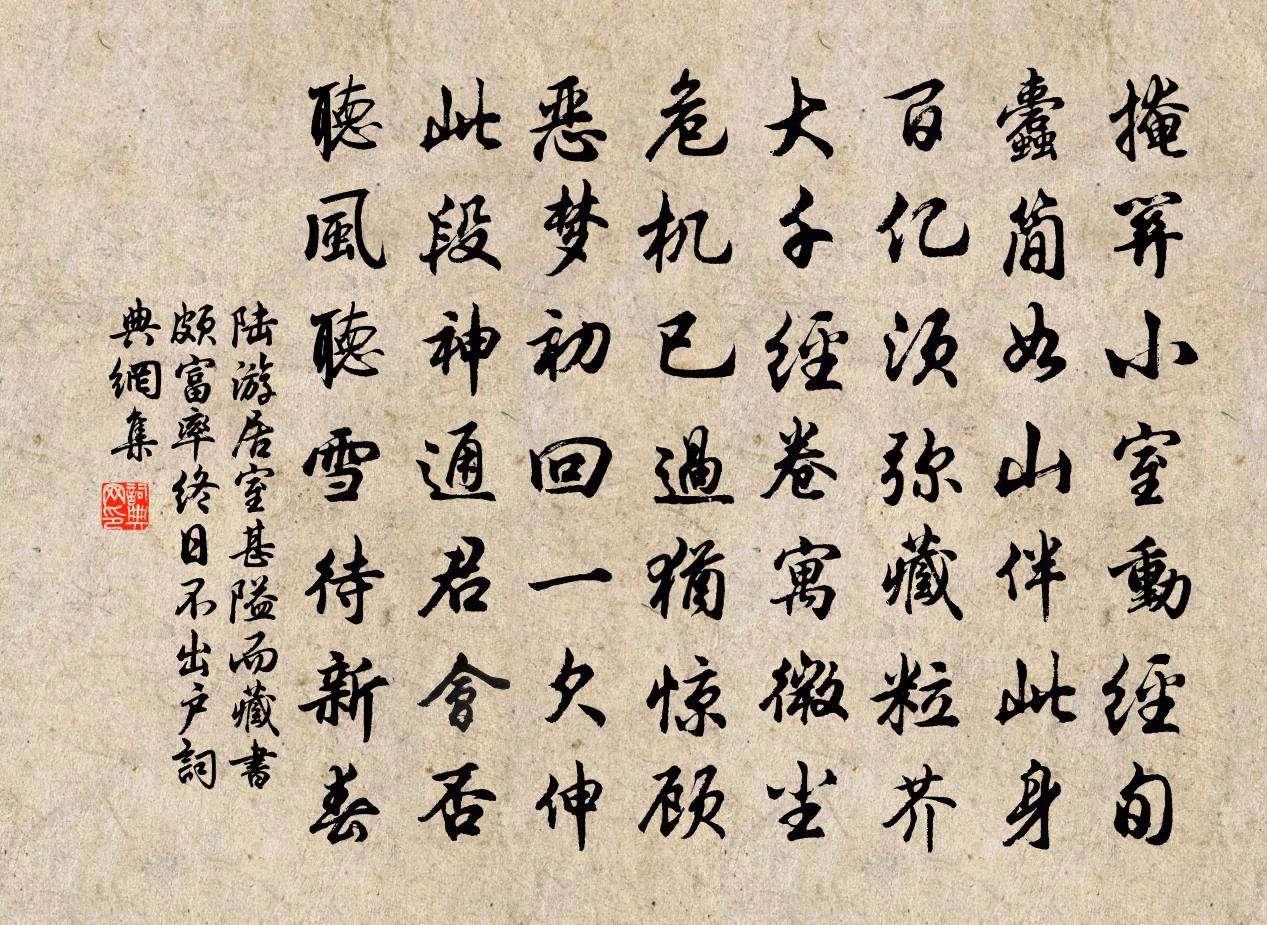 掩关小室動經旬
蠹简如山伴此身
百亿须弥藏粒芥
大千經卷寓微尘
危机已過猶惊顾
恶梦初回一欠伸
此段神通君會否
聽風聽雪待新春
陆游居室甚隘而藏書
颇富率终日不出户詞
典網集
詞典网印